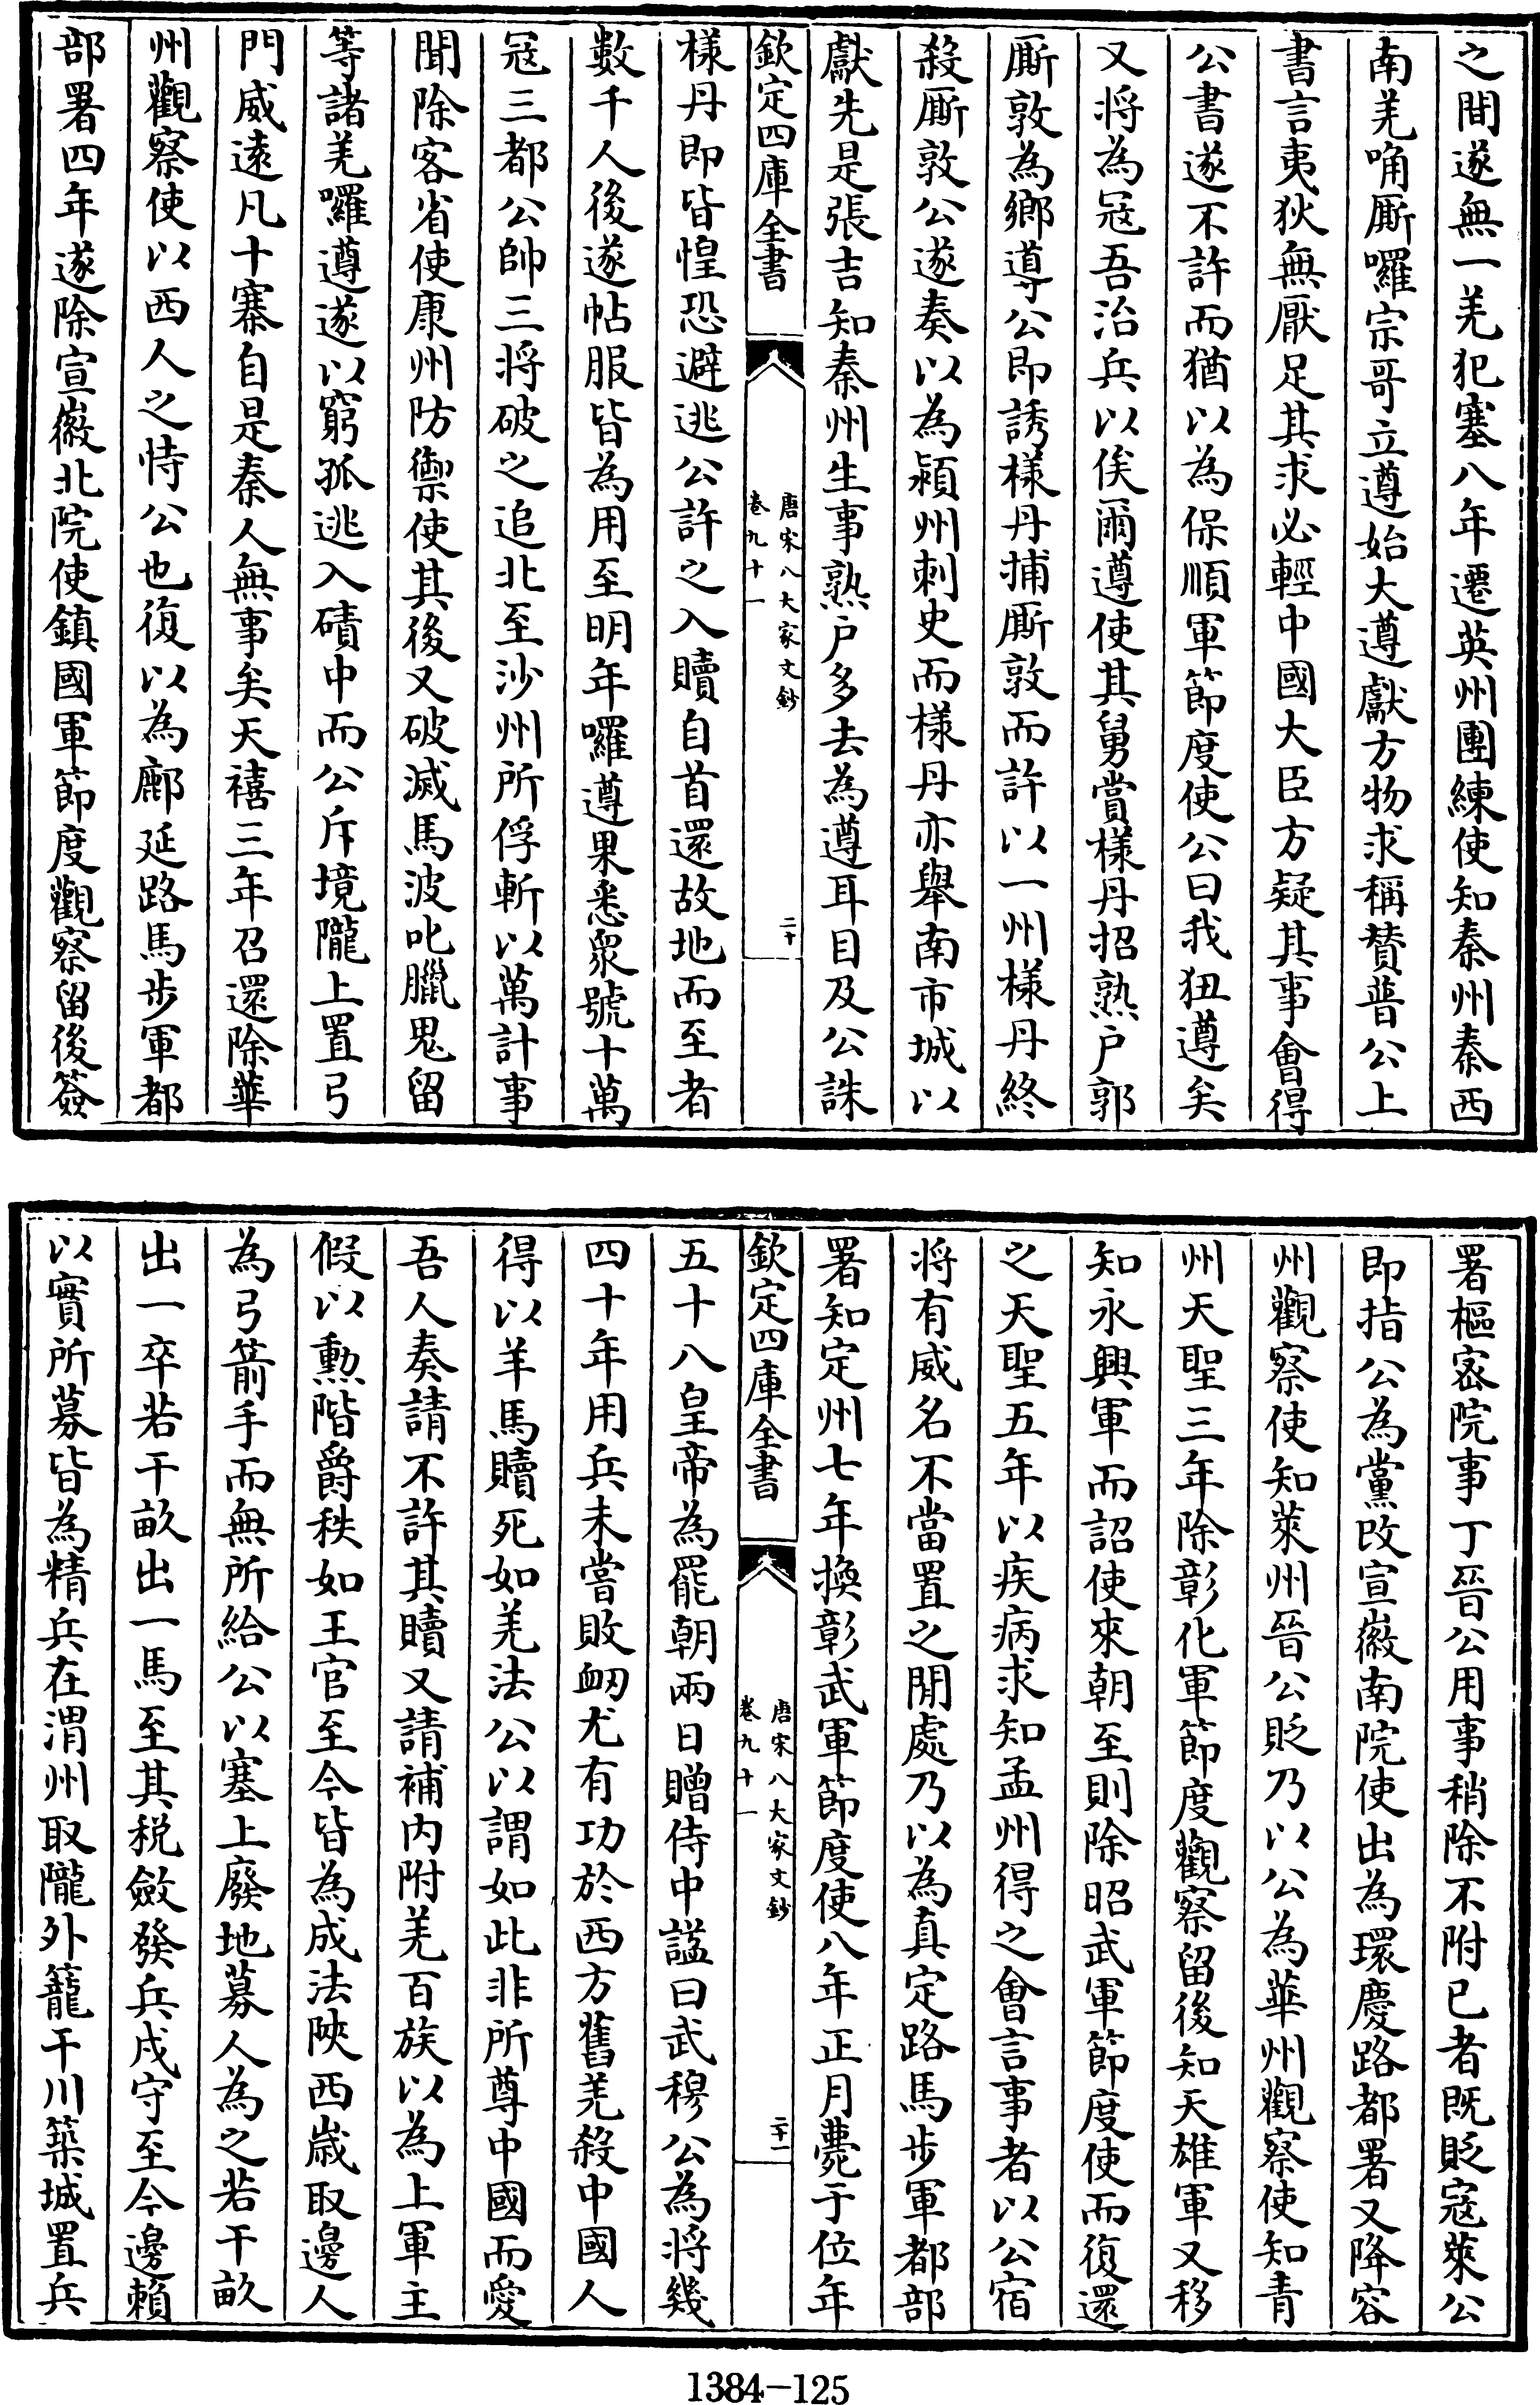 之間遂無一羌犯塞八年遷英州團練使知秦州秦西
南羌唃厮囉宗哥立遵始大遵獻方物求稱賛普公上
書言夷狄無厭足其求必輕中國大臣方疑其事會得
公書遂不許而猶以為保順軍節度使公曰我狃遵矣
又将為冦吾治兵以俟爾遵使其舅賞様丹招熟户郭
厮敦為鄉導公即誘様丹捕厮敦而許以一州様丹終
殺厮敦公遂奏以為潁州刺史而様丹亦舉南市城以
獻先是張吉知秦州生事熟户多去為遵耳目及公誅
欽定四庫全書
唐宋八大家文鈔
卷九十一
二十
様丹即皆惶恐避逃公許之入贖自首還故地而至者
數千人後遂帖服皆為用至明年囉遵果悉衆號十萬
冦三都公帥三将破之追北至沙州所俘斬以萬計事
聞除客省使康州防禦使其後又破滅馬波叱臘鬼留
等諸羌囉遵遂以窮孤逃入磧中而公斥境隴上置弓
門威遠凡十寨自是秦人無事矣天禧三年召還除華
州觀察使以西人之恃公也復以為鄜延路馬步軍都
部署四年遂除宣徽北院使鎮國軍節度觀察留後簽
署樞宻院事丁晉公用事稍除不附已者既貶寇萊公
即指公為黨改宣徽南院使出為環慶路都署又降容
州觀察使知萊州晉公貶乃以公為華州觀察使知青
州天聖三年除彰化軍節度觀察留後知天雄軍又移
知永興軍而詔使來朝至則除昭武軍節度使而復還
之天聖五年以疾病求知孟州得之會言事者以公宿
将有威名不當置之閒處乃以為真定路馬步軍都部
署知定州七年換彰武軍節度使八年正月薨于位年
欽定四庫全書
唐宋八大家文鈔
卷九十一
二十一
五十八皇帝為罷朝兩日贈侍中諡曰武穆公為将幾
四十年用兵未嘗敗衂尤有功於西方舊羌殺中國人
得以羊馬贖死如羌法公以謂如此非所尊中國而愛
吾人奏請不許其贖又請補内附羌百族以為上軍主
假以勲階爵秩如王官至今皆為成法陜西歳取邊人
為弓箭手而無所給公以塞上廢地募人為之若干畝
出一卒若干畝出一馬至其税斂發兵戍守至今邊賴
以實所募皆為精兵在渭州取隴外籠干川築城置兵
1384-125